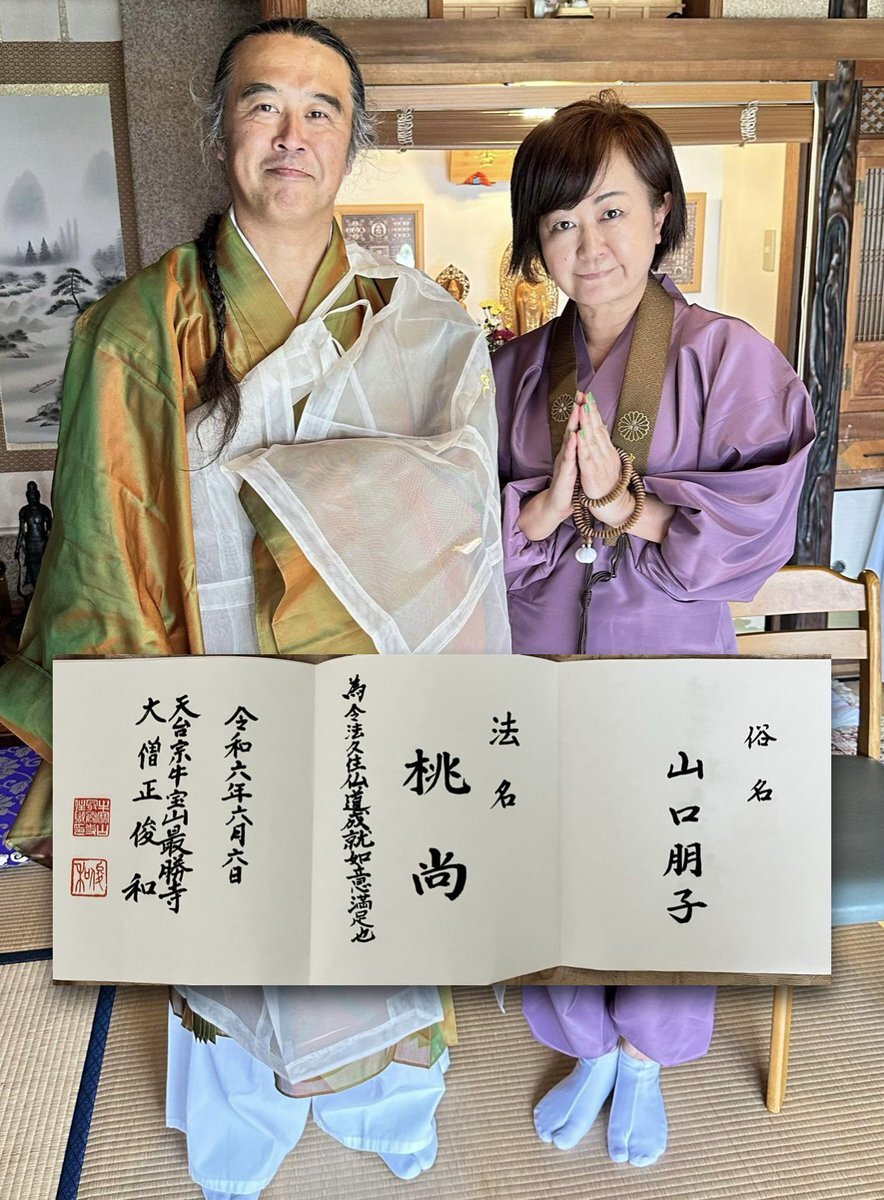 俗名
山口朋子
法名
桃尚
為令法久住仏道成就如意満足也
令和六年六月六日
天台宗牛宝山最勝寺
大僧正俊和
俊和